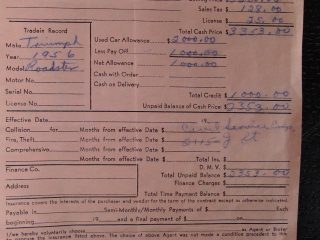 Sales Tax $ 128.00
License $ 25.00
Total Cash Price $ 3353.00
Tradein Record
Make Triumph
Year 1956
Model Roadster
Motor No.
Serial No.
License No.
Used Car Allowance $ 2000.00
Less Pay Off $ 1000.00
Net Allowance $ 1000.00
Cash with Order $
Cash on Delivery $
Total Credit $ 1000.00
Unpaid Balance of Cash Price $ 2353.00
Effective Date 19
Collision for Months from effective Date $
Fire, Theft Months from effective Date $
Comprehensive Months from effective Date $
Total Ins. $
D. M. V. $
Finance Co. Total Unpaid Balance $ 2353.00
Finance Charges $
Address
Total Time Payment Balance $
Insurance covers the interests of the purchaser and vendor for the term of the contract except as otherwise indicated.
Payable in Semi-Monthly/Monthly Payments of $ Each
beginning 19 and a final payment of
as Agent or Broker
I/we hereby voluntarily choose